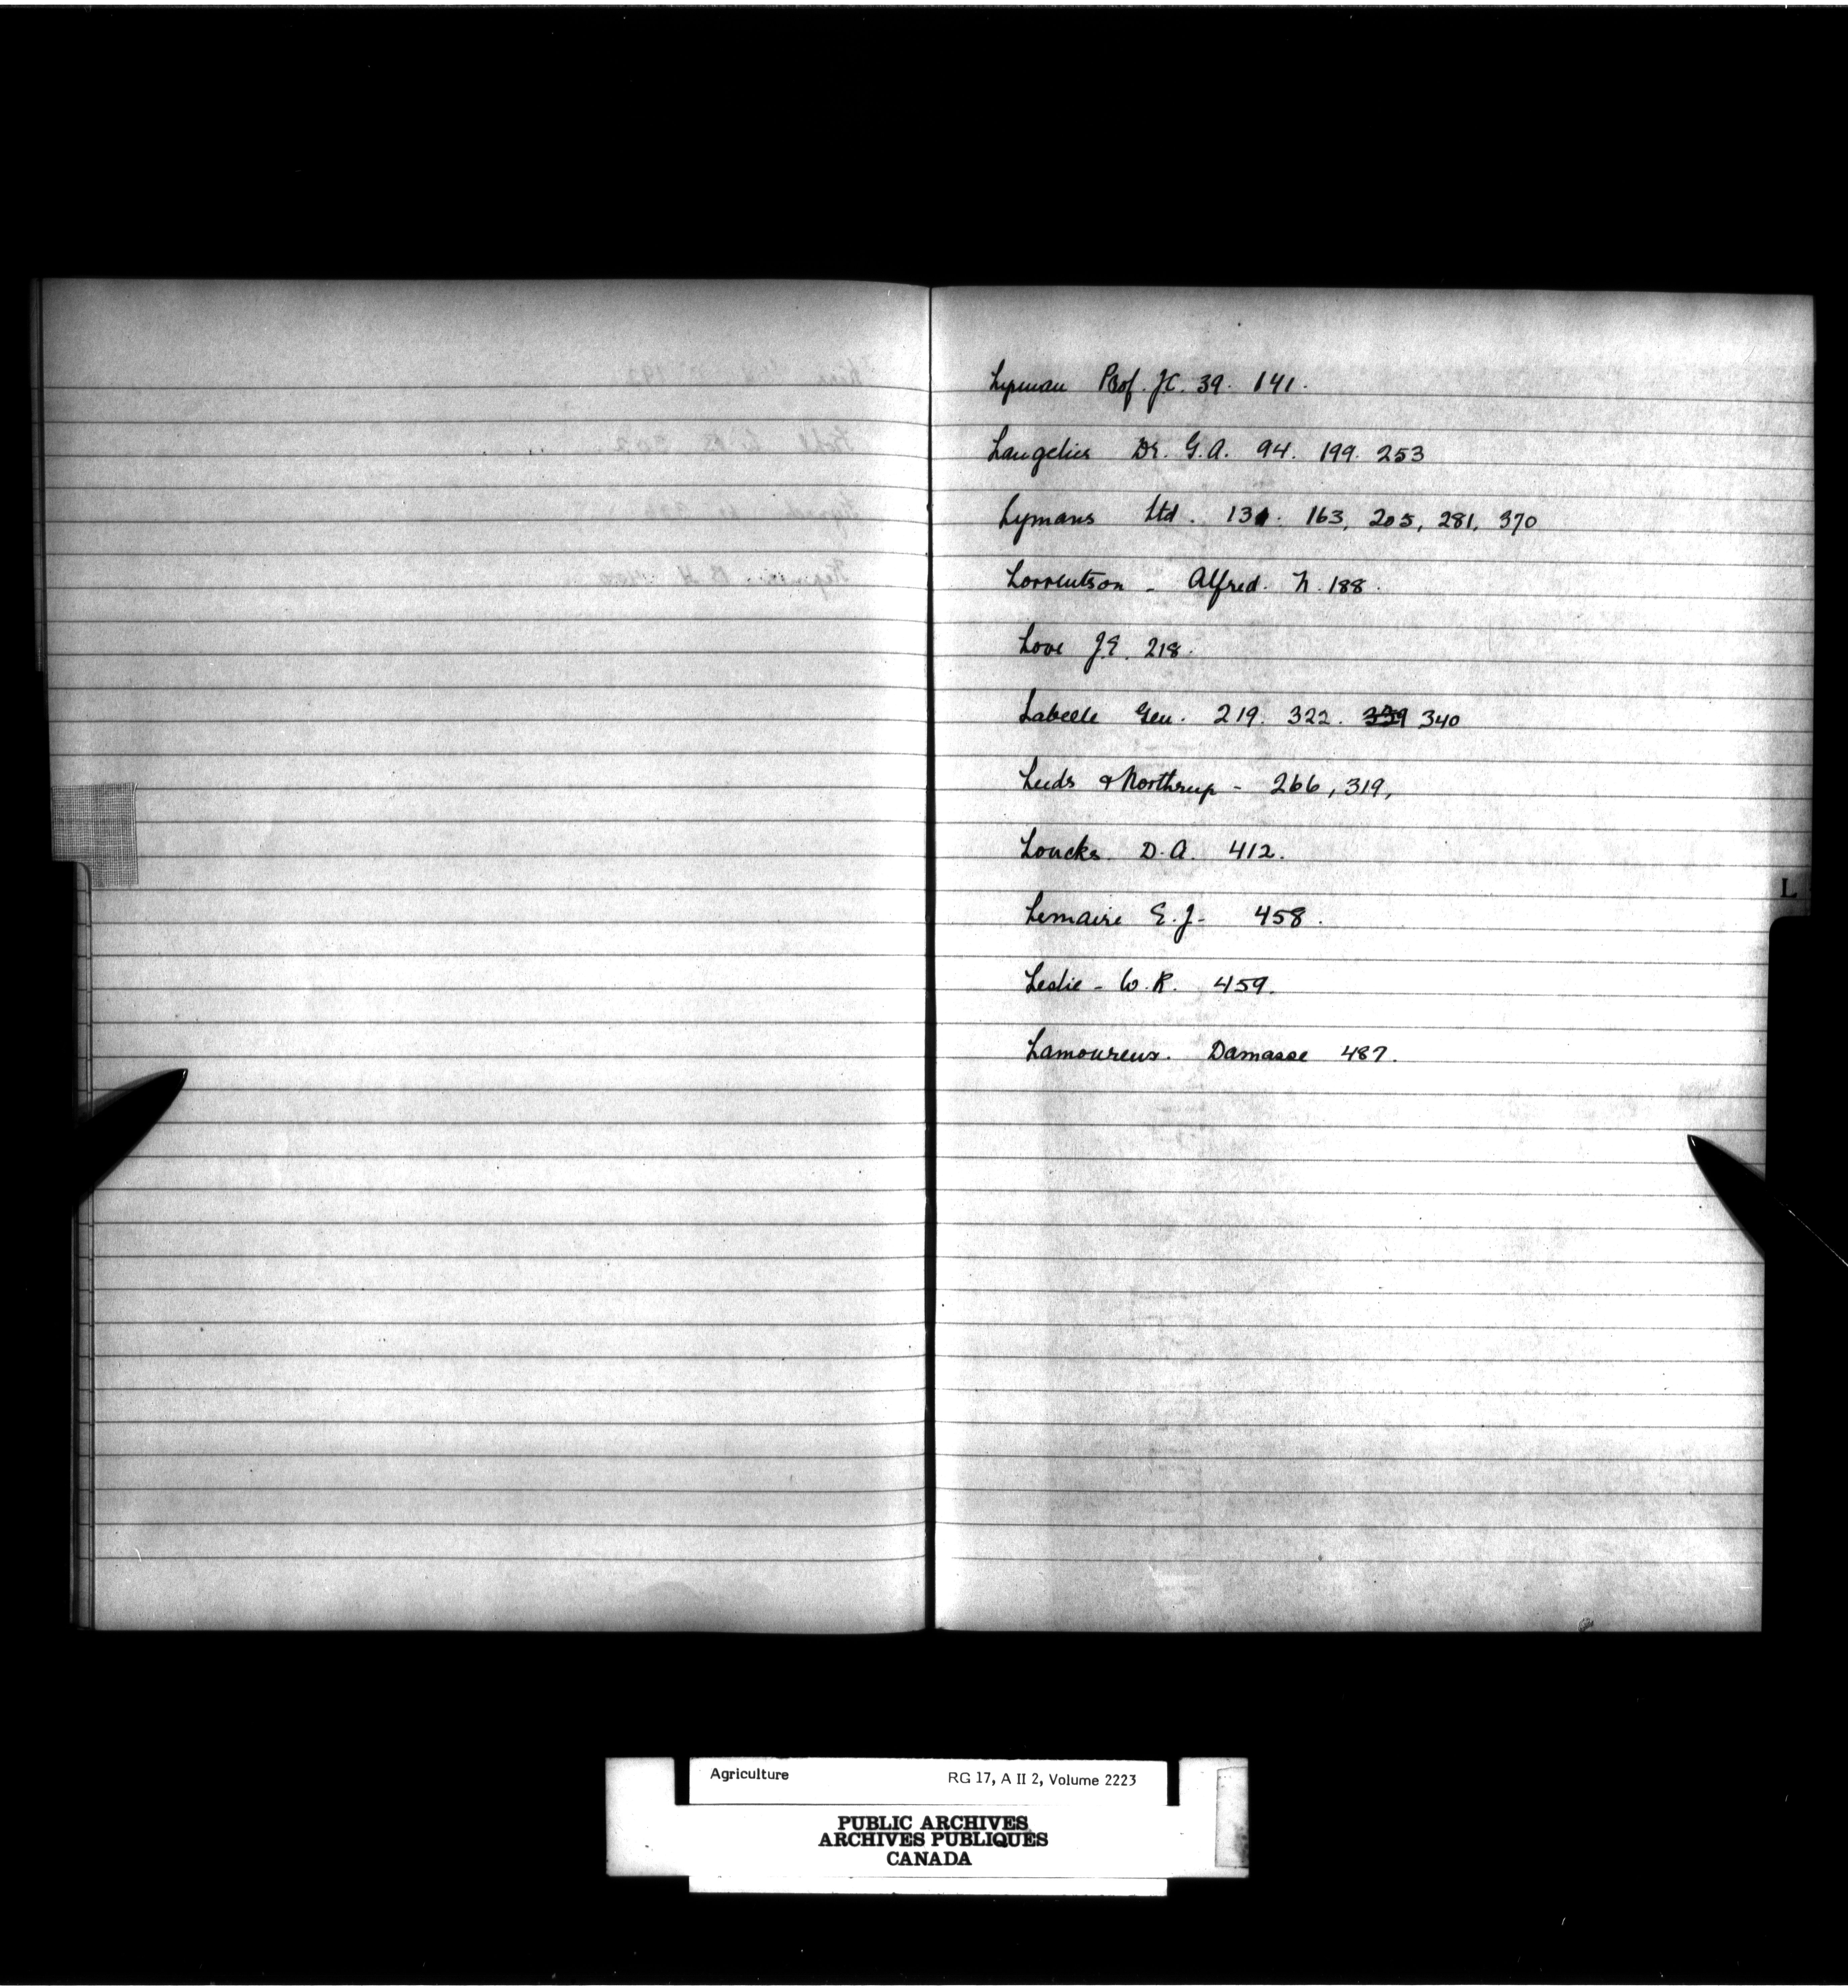 Lyman Prof. J.C. 39. 141.
Langelier Dr. G.A. 94. 199. 253
Lymans Ltd. 131. 163, 205, 281, 370
Lorrentson - Alfred. N. 188.
Love J.E. 218.
Labelle Geu. 219. 322. 339 340
Leeds & Northrup - 266, 319,
Loucks. D.A. 412.
Lemaire E.J- 458.
Leslie - W.R. 459.
Lamoureux. Damasse 487.
L
Agriculture RG 17, A II 2, Volume 2223
PUBLIC ARCHIVES
ARCHIVES PUBLIQUES
CANADA